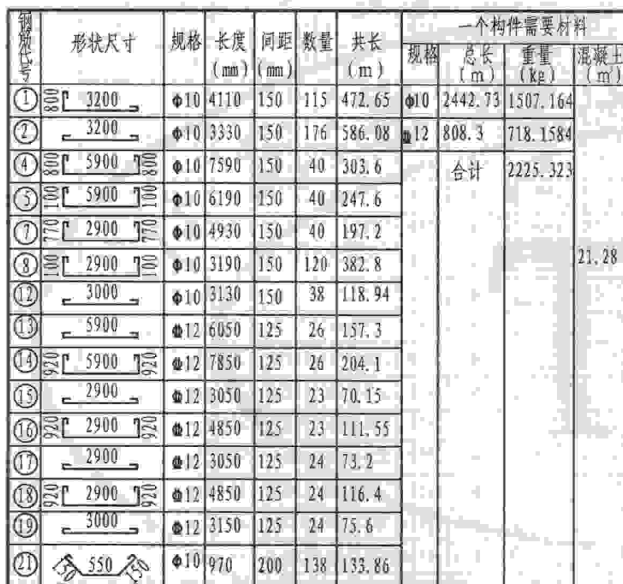 钢筋代号 形状尺寸 规格 长度(mm) 间距(mm) 数量 共长(m) 一个构件需要材料
规格 总长(m) 重量(kg) 混凝土(m³)
① 800 3200 Φ10 4110 150 115 472.65 Φ10 2442.73 1507.164
② 3200 Φ10 3330 150 176 586.08 Φ12 808.3 718.1584
④ 800 5900 800 Φ10 7590 150 40 303.6 合计 2225.323
⑤ 100 5900 100 Φ10 6190 150 40 247.6
⑦ 770 2900 770 Φ10 4930 150 40 197.2
⑧ 100 2900 100 Φ10 3190 150 120 382.8 21.28
⑫ 3000 Φ10 3130 150 38 118.94
⑬ 5900 Φ12 6050 125 26 157.3
⑭ 920 5900 920 Φ12 7850 125 26 204.1
⑮ 2900 Φ12 3050 125 23 70.15
⑯ 920 2900 920 Φ12 4850 125 23 111.55
⑰ 2900 Φ12 3050 125 24 73.2
⑱ 920 2900 920 Φ12 4850 125 24 116.4
⑲ 3000 Φ12 3150 125 24 75.6
㉑ 150 550 150 Φ10 970 200 138 133.86